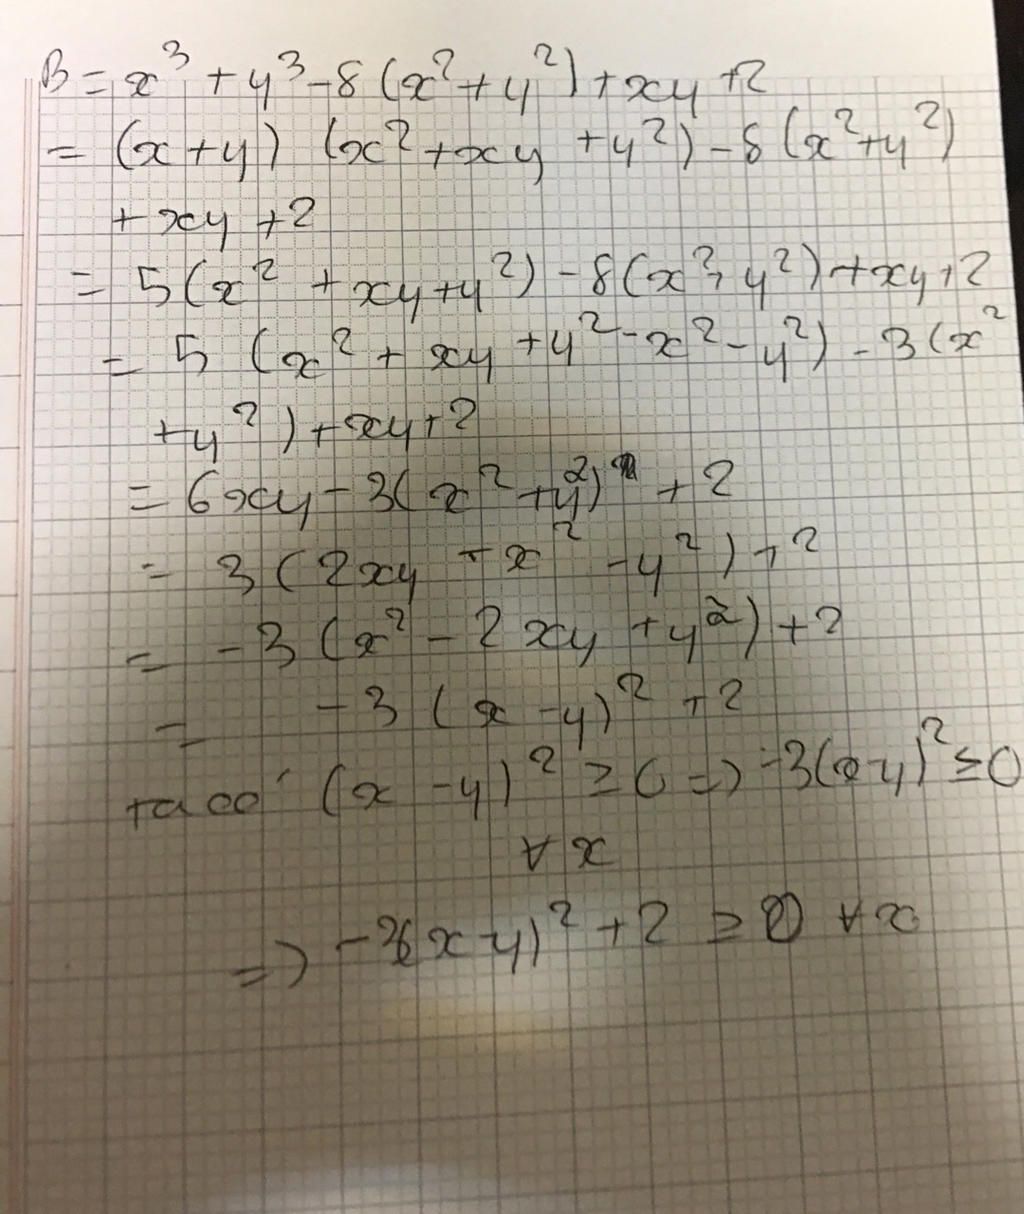 B = x³ + y³ - 8 (x² + y²) + xy + 2
= (x + y) (x² + xy + y²) - 8 (x² + y²)
+ xy + 2
= 5 (x² + xy + y²) - 8 (x² + y²) + xy + 2
= 5 (x² + xy + y² - x² - y²) - 3 (x²
+ y²) + xy + 2
= 6xy - 3 (x² + y²) + 2
= 3 (2xy - x² - y²) + 2
= -3 (x² - 2xy + y²) + 2
= -3 (x - y)² + 2
ta có (x - y)² ≥ 0 => -3(x-y)² ≤ 0
∀ x
=> -3(x-y)² + 2 ≤ ∀ x